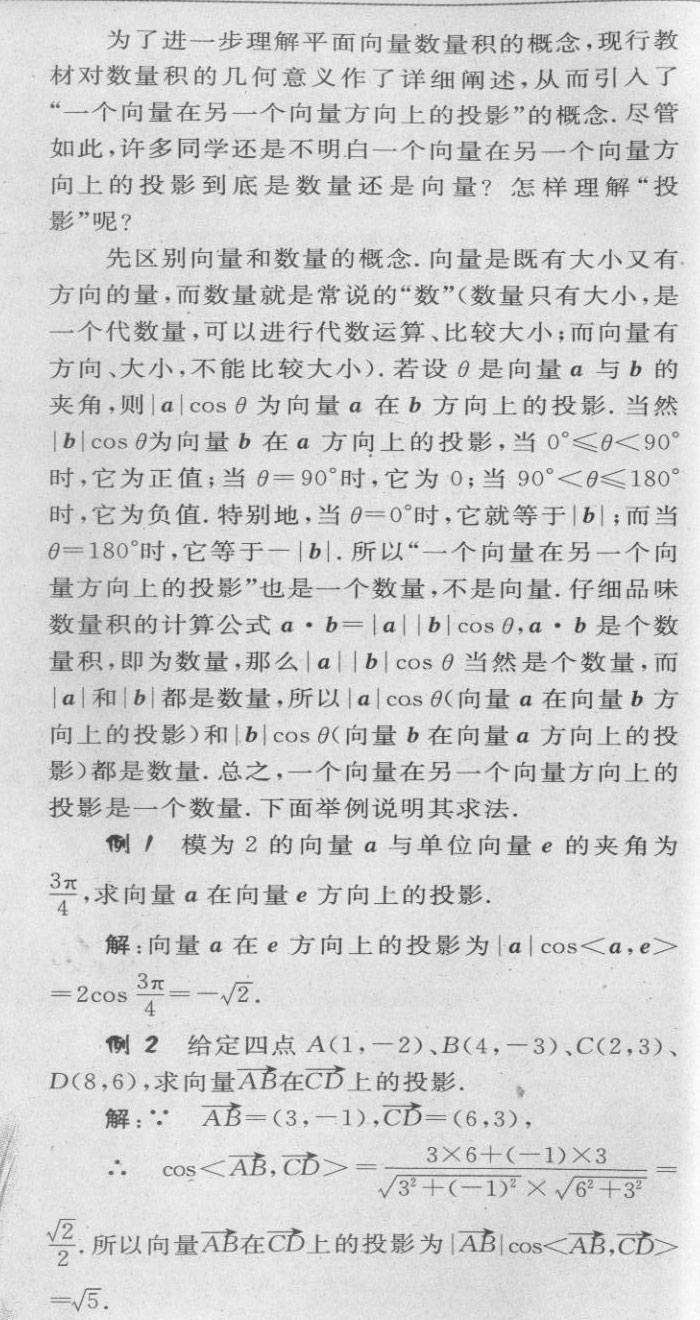 为了进一步理解平面向量数量积的概念,现行教
材对数量积的几何意义作了详细阐述,从而引入了
“一个向量在另一个向量方向上的投影”的概念.尽管
如此,许多同学还是不明白一个向量在另一个向量方
向上的投影到底是数量还是向量?怎样理解“投
影”呢?
先区别向量和数量的概念.向量是既有大小又有
方向的量,而数量就是常说的“数”(数量只有大小,是
一个代数量,可以进行代数运算、比较大小;而向量有
方向、大小,不能比较大小).若设 θ 是向量 a 与 b 的
夹角,则|a|cos θ 为向量 a 在 b 方向上的投影.当然
|b|cos θ为向量 b 在 a 方向上的投影,当 0°≤θ<90°
时,它为正值;当 θ=90°时,它为 0;当 90°<θ≤180°
时,它为负值.特别地,当 θ=0°时,它就等于|b|;而当
θ=180°时,它等于-|b|.所以“一个向量在另一个向
量方向上的投影”也是一个数量,不是向量.仔细品味
数量积的计算公式 a·b=|a||b|cos θ,a·b 是个数
量积,即为数量,那么|a||b|cos θ 当然是个数量,而
|a|和|b|都是数量,所以|a|cos θ(向量 a 在向量 b 方
向上的投影)和|b|cos θ(向量 b 在向量 a 方向上的投
影)都是数量.总之,一个向量在另一个向量方向上的
投影是一个数量.下面举例说明其求法.
例 1 模为 2 的向量 a 与单位向量 e 的夹角为
3π/4,求向量 a 在向量 e 方向上的投影.
解:向量 a 在 e 方向上的投影为|a|cos<a,e>
=2cos 3π/4=-√2.
例 2 给定四点 A(1,-2)、B(4,-3)、C(2,3)、
D(8,6),求向量AB→在CD→上的投影.
解:∵ AB→=(3,-1),CD→=(6,3),
∴ cos<AB→,CD→>=(3×6+(-1)×3)/(√(3²+(-1)²)×√(6²+3²))=
√2/2.所以向量AB→在CD→上的投影为|AB→|cos<AB→,CD→>
=√5.